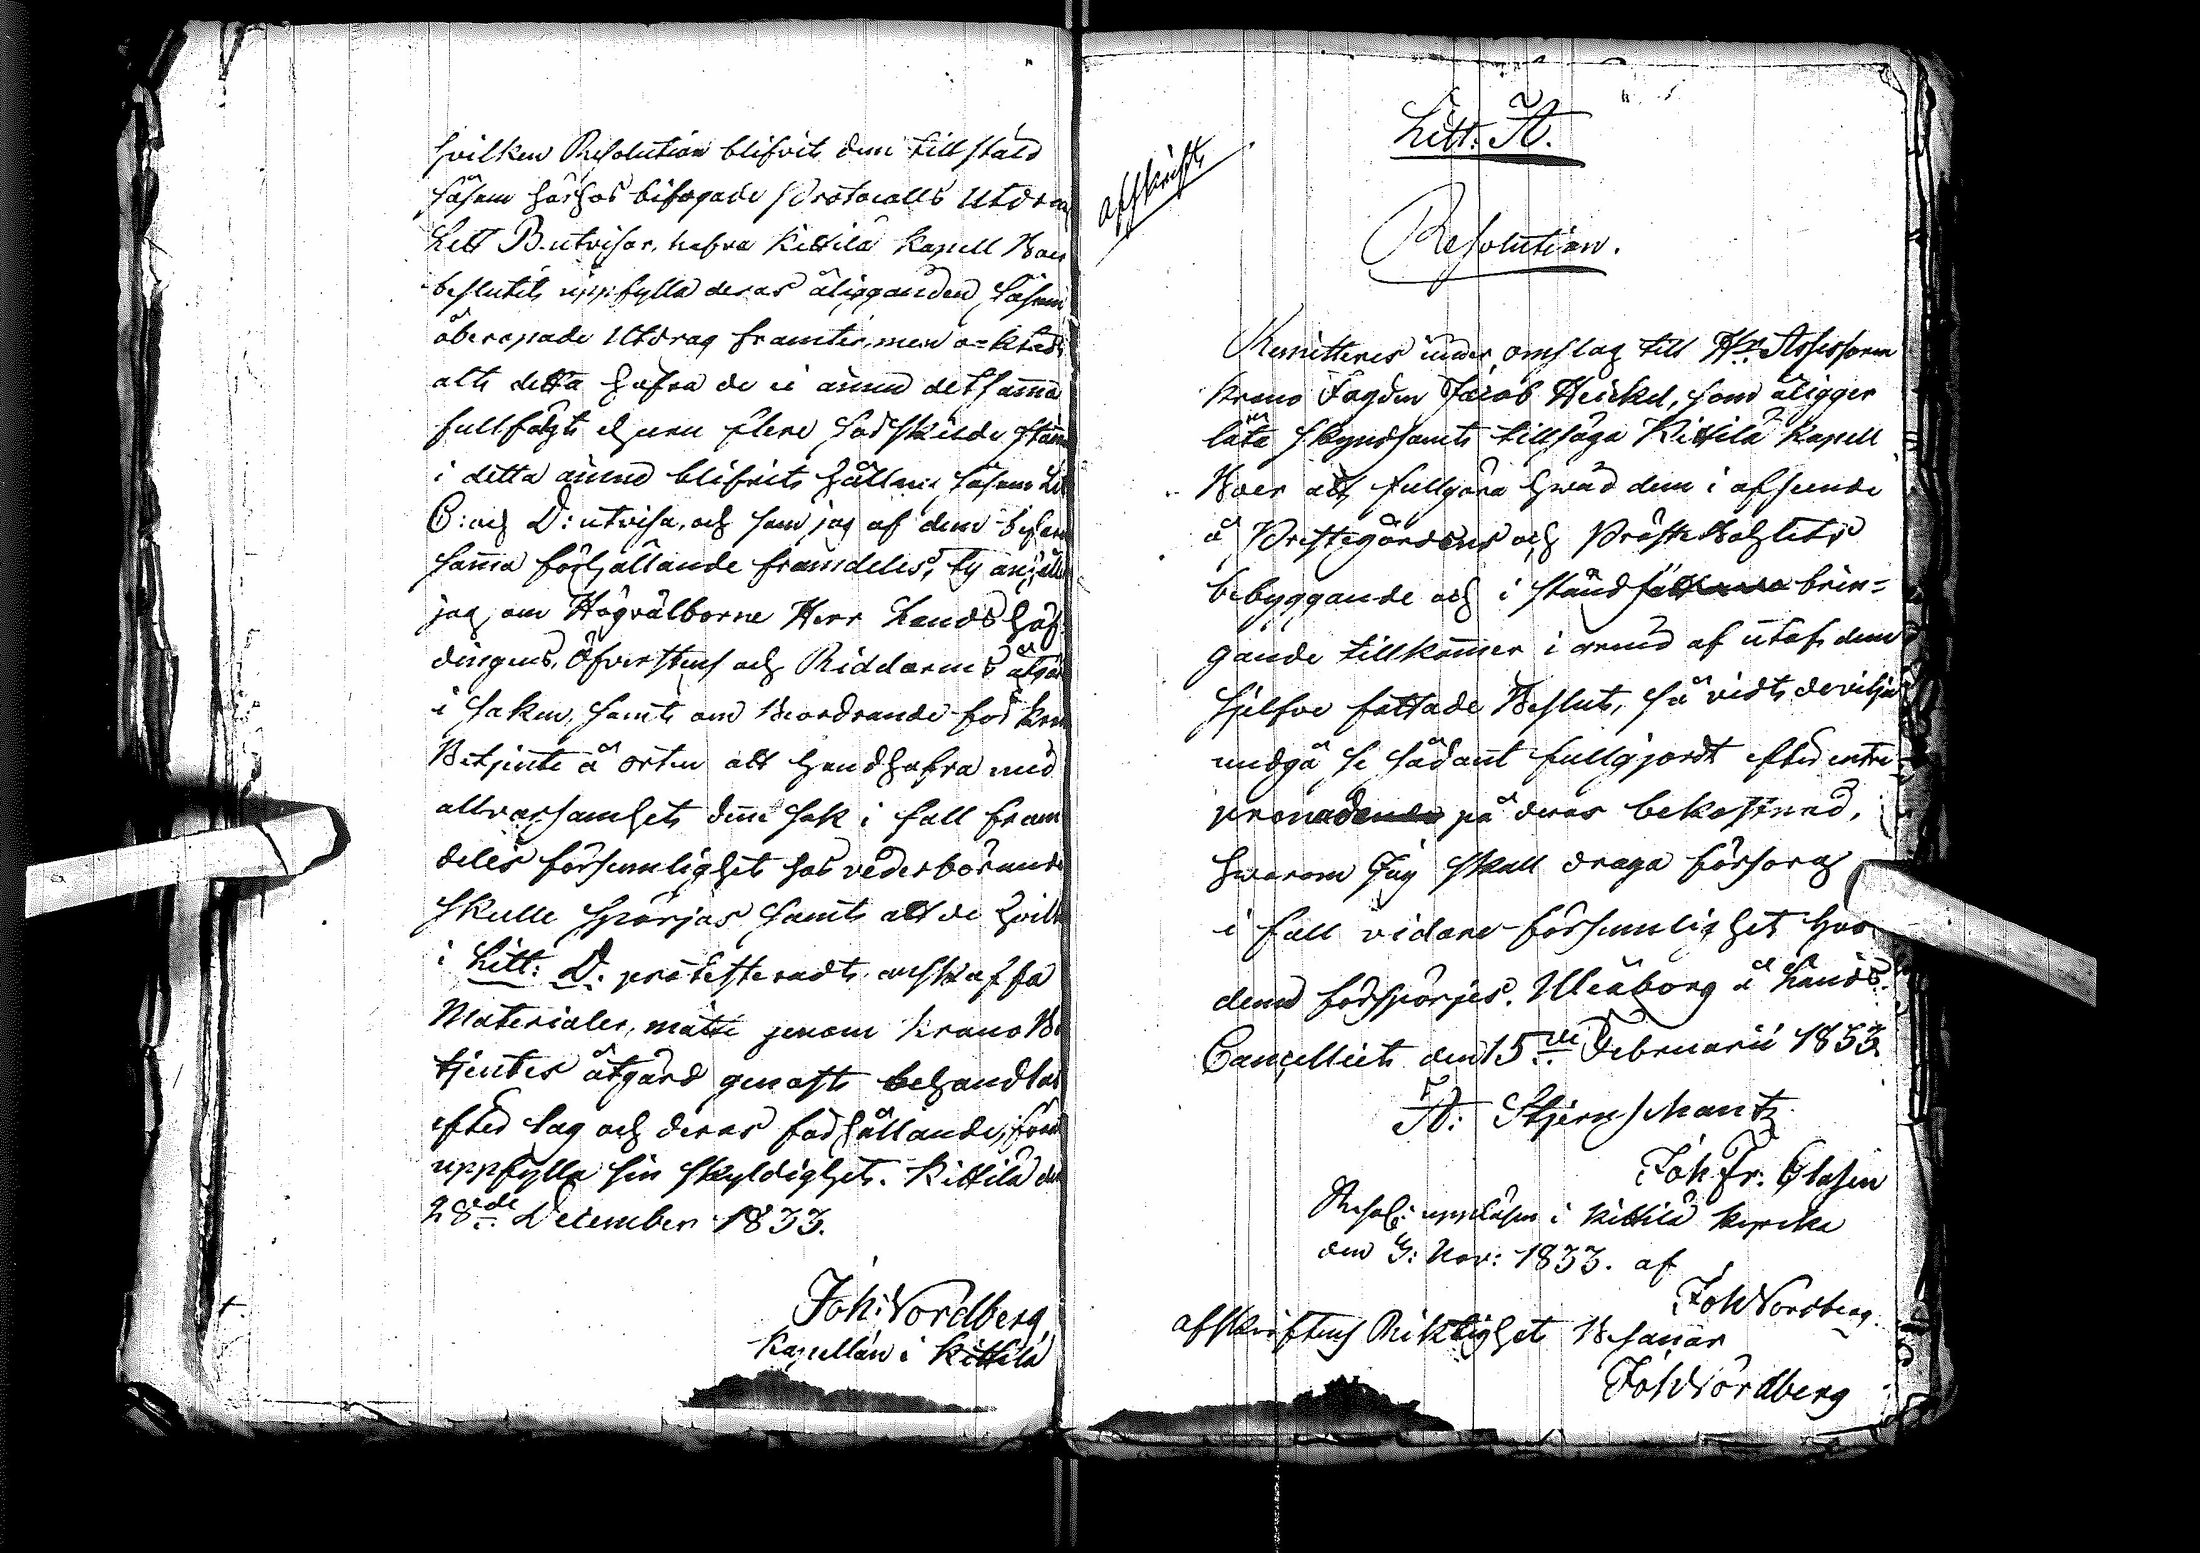 hvilken Resolution blifvit dem tillstäld
såsom härhos bifogade Protocolls Utdrag
Litt B. utvisar, hafva Kittilä Kapell Boer
beslutit uppfylla deras åligganden, såsom
åberopade Utdrag framter, men oaktadt
alt detta hafva de ei ännu detsamma
fullfölgt ehuru flere särskilde stämmor
i detta ämne blifvit hållne såsom Litt
C: och D: utvisa, och som jag af dem befarar
samma förhållande framdeles, ty anhåller
jag om Högvälborne Herr Landshöf-
dingens, Öfverstens och Riddarens åtgärd
i saken, samt om Beordrande för Krono
Betjente å orten att handhafva med
allvarsamhet denne sak i fall fram
deles försumlighet hos vederbörande
skulle spörjas samt att de hvilka
i Litt: D. protesteradt anskaffa
Materialer, måtte genom Krono Be
tjentes åtgärd genast behandlas
efter lag och deras förhållande, för att
uppfylla sin skyldighet. Kittilä den
28de December 1833.
Joh: Nordberg,
Kapellan i Kittilä
afskrift
Litt. A.
Resolution.
Remitteres under omslag till Hr. Assessoren
Krono Fogden Jacob Heickel, som åligger
låta skyndsamt tillsäga Kittilä Kapell
Boer att fullgöra hwad dem i afseende
å Prestegårdens och Prästebohlets
bebyggande och i stånd brin=
gande tillkommer i grund af utaf dem
sjelfve fattade Beslut, så vidt de vilja
undgå se sådant fullgjordt efter entre
prenad på deras bekostnad,
hwarom Jag skall draga försorg
i fall vidare försumlighet hos
dem försspörjes. Uleåborg å Lands
Cancelliet den 15de Februarii 1833
A: Stjernschantz
Joh Fr. Classen
Resol: uppläsen i Kittilä kyrcka
den 3: Nov: 1833. af
Joh Nordberg.
afskriftens Riktighet Besannar
Joh Nordberg